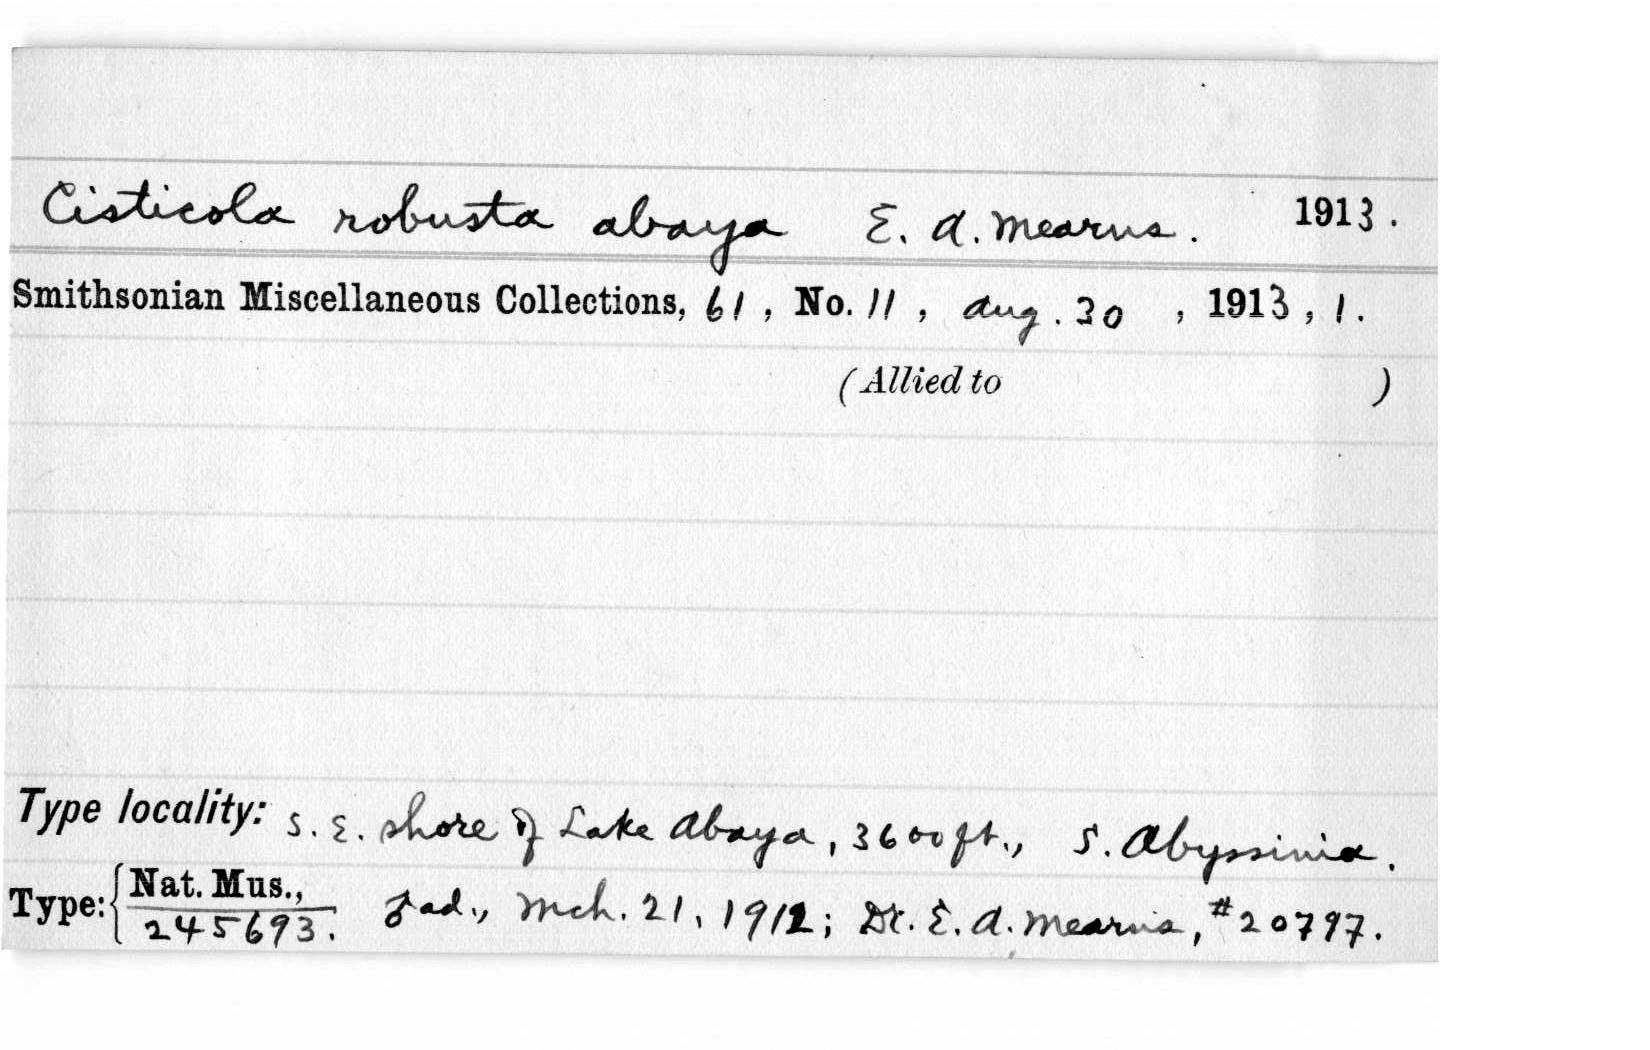 Cisticola robusta abaya E. A. Mearns. 1913.
Smithsonian Miscellaneous Collections, 61, No. 11, Aug. 30, 1913, 1.
(Allied to )
Type locality: S. E. shore of Lake Abaya, 3600 ft., S. Abyssinia.
Type: { Nat. Mus., 245693. ♂ ad., Mch. 21, 1912; Dr. E. A. Mearns, #20797.